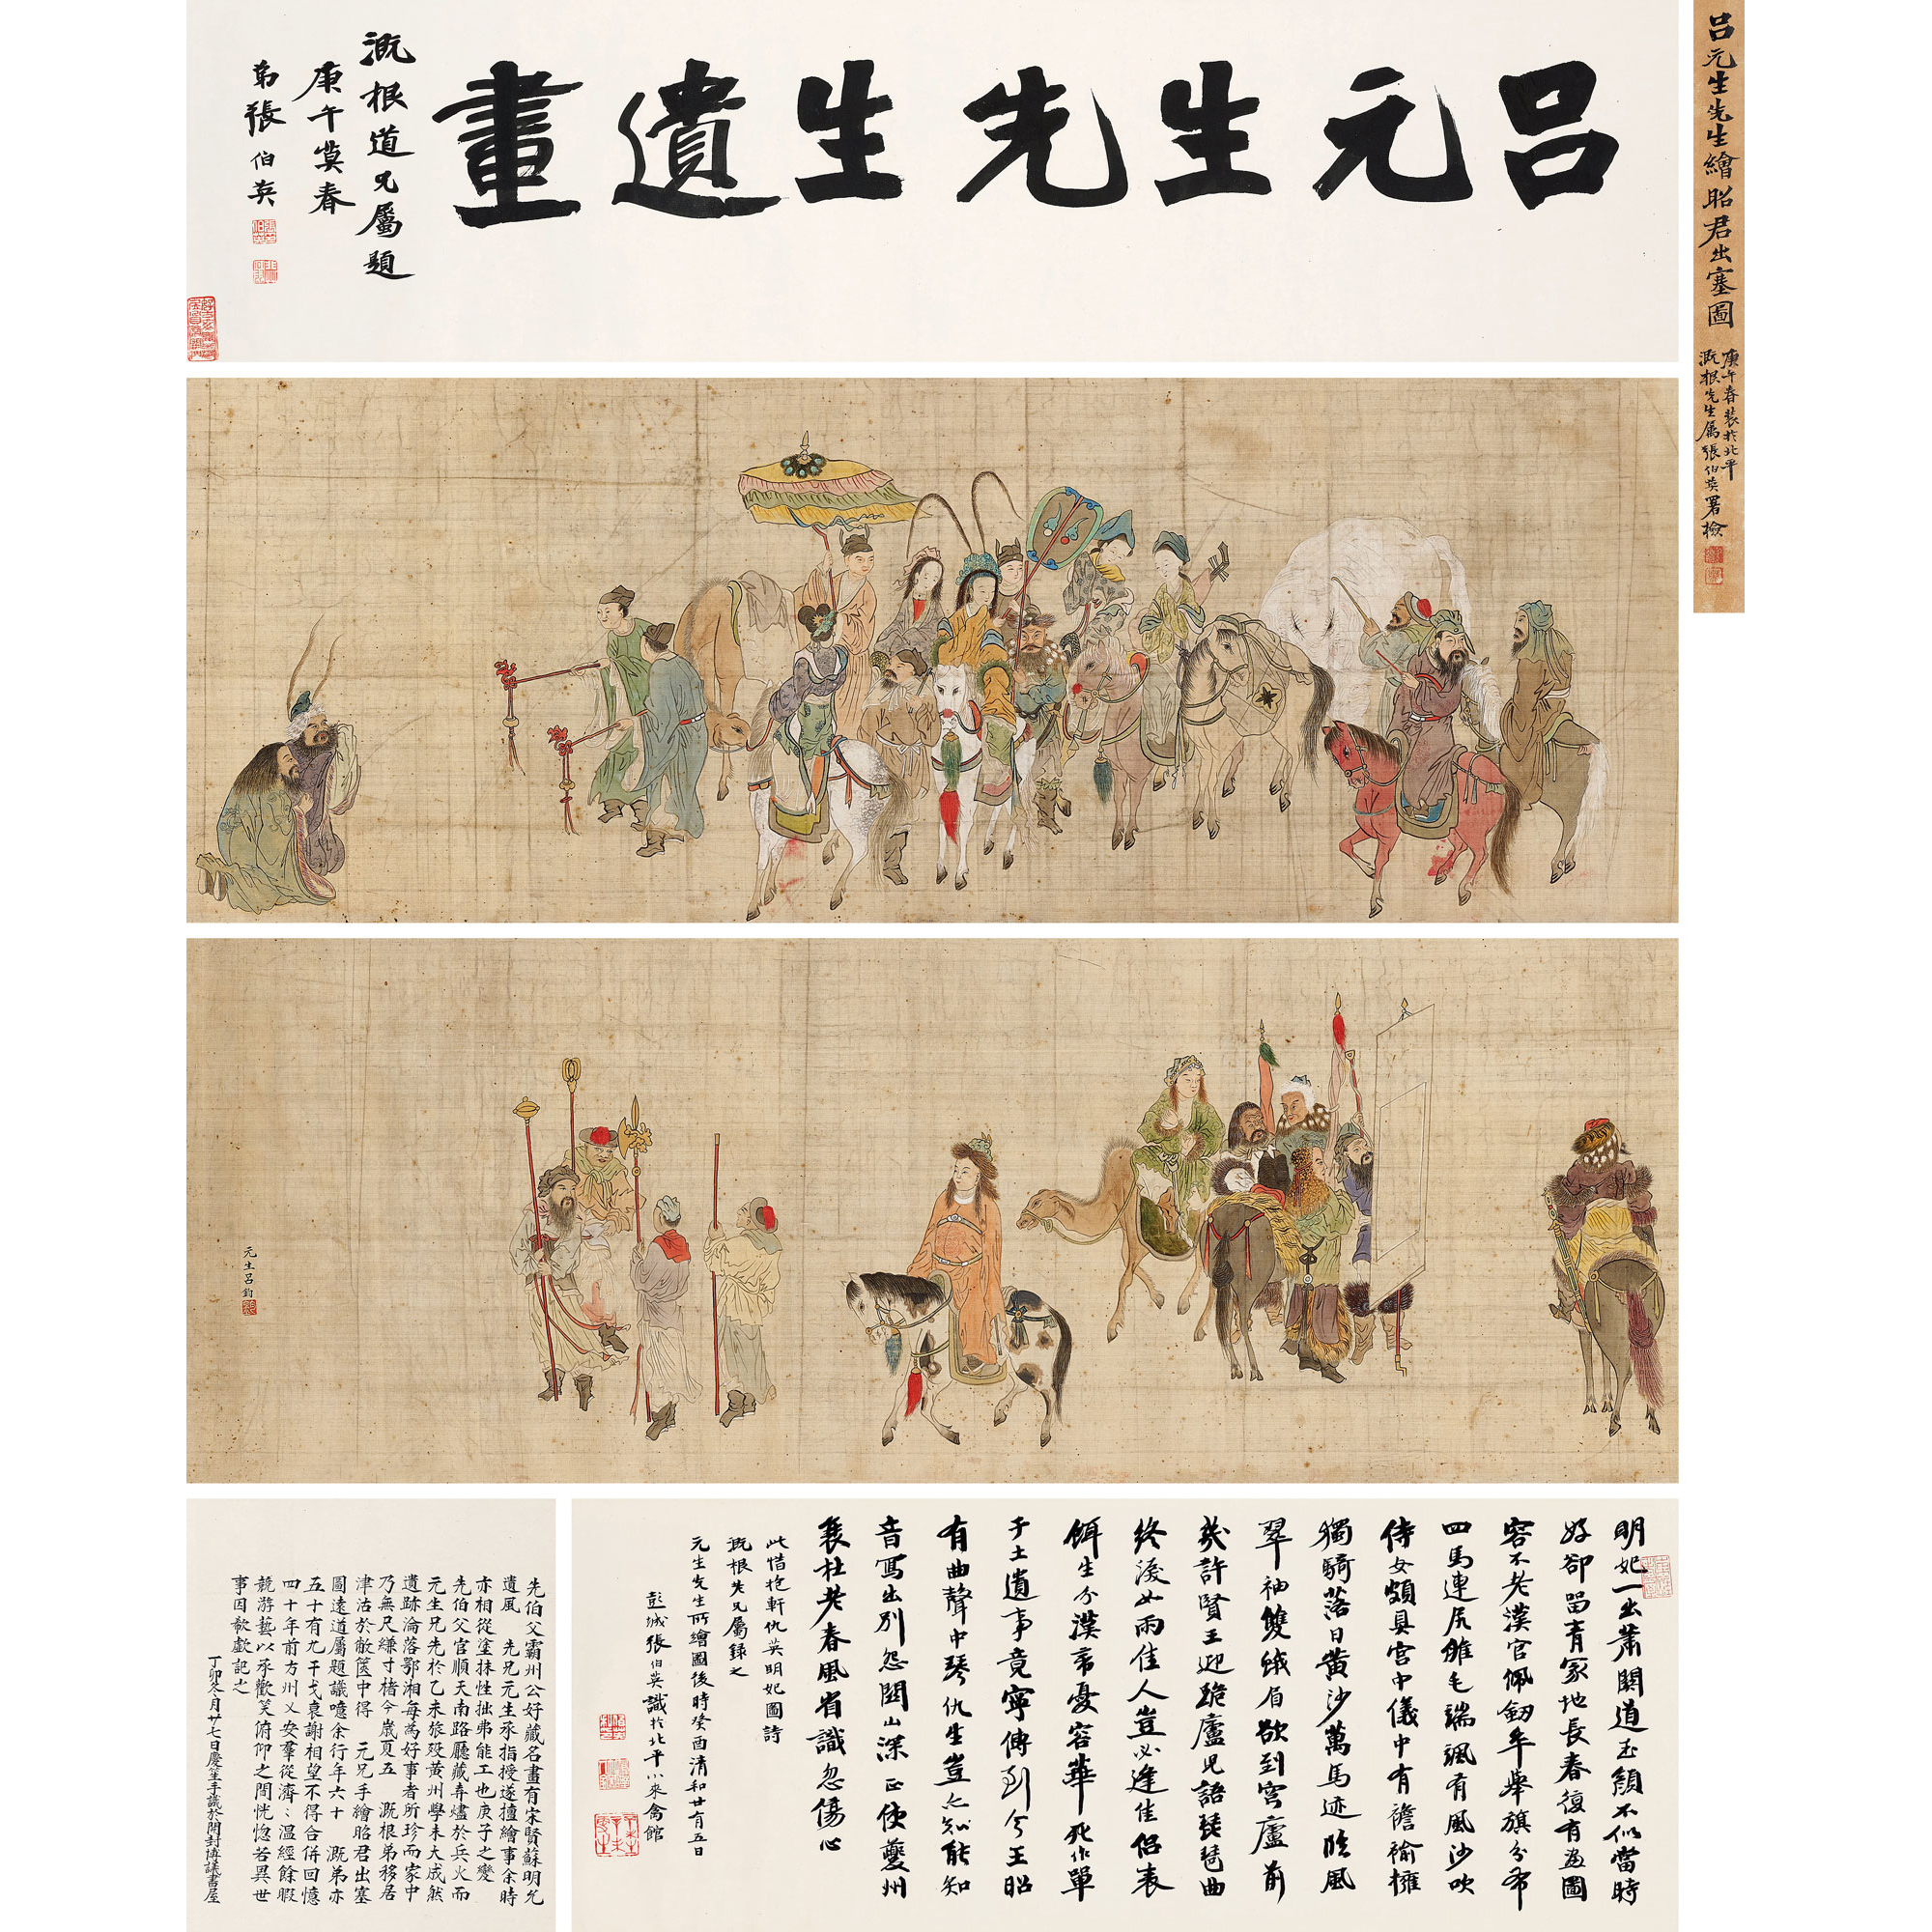 呂元生先生遺畫
溉根道兄屬題
庚午莫春
弟張伯英
呂元生先生繪昭君出塞圖
庚午春裝於北平
溉根先生屬張伯英署檢
元生呂鈞
明妃一出蕭關道玉顏不似當時
好卻留青冢地長春復有畫圖
容不老漢官佩劒牟舉旗分布
四馬連尻雒毛端颯有風沙吹
侍女頗具宮中儀中有襜褕擁
獨騎落日黃沙萬馬迹臨風
翠袖雙蛾眉欲到穹廬前
幾許賢王迎跪廬兒語琵琶曲
終淚如雨佳人豈必逢佳侶表
餌生分漢帝憂容華死作單
于土遺事竟寧傳到今王昭
有曲聲中琴仇生豈亦知能知
音寫出別怨關山深正使夔州
衰杜老春風省識忽傷心
此惜抱軒仇英明妃圖詩
溉根先兄屬錄之
元生先生所繪圖後時癸酉清和廿有五日
彭城張伯英識於北平小來禽館
先伯父霸州公好藏名畫有宋賢蘇明允
遺風　先兄元生承指授遂擅繪事余時
亦相從塗抹性拙弗能工也庚子之變
先伯父官順天南路廳藏弆燼於兵火而
元生兄先於乙未旅歿黃州學未大成然
遺跡淪落鄂湘每為好事者所珍而家中
乃無尺縑寸楮今歲夏五　溉根弟移居
津沽於敝篋中得　元兄手繪昭君出塞
圖遠道屬題識噫余行年六十　溉弟亦
五十有九干戈衰謝相望不得合併回憶
四十年前方州乂安羣從濟〻溫經餘暇
競游藝以承歡笑俯仰之間恍惚若異世
事因欷歔記之
丁卯冬月廿七日慶笙手識於開封博議書屋